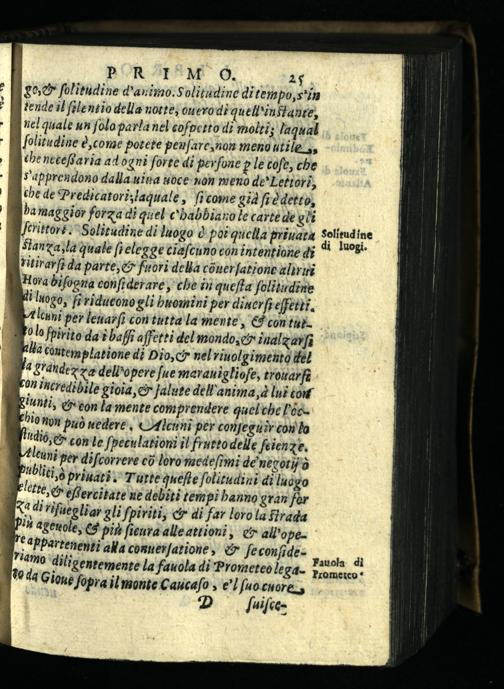 PRIMO. 25
go, & solitudine d'animo. Solitudine di tempo, s'in
tende il silentio della notte, ouero di quell'instante,
nel quale un solo parla nel cospetto di molti; laqual
solitudine è, come potete pensare, non meno utile,
che necessaria ad ogni sorte di persone p le cose, che
s'apprendono dalla uiua uoce non meno de' Lettori,
che de Predicatori; laquale, si come già si è detto,
ha maggior forza di quel c'habbiano le carte de gli
scrittori. Solitudine di luogo è poi quella priuata
Solitudine
di luogi.
stanza, la quale si elegge ciascuno con intentione di
ritirarsi da parte, & fuori della cõuersatione altrui
Hora bisogna considerare, che in questa solitudine
di luogo, si riducono gli huomini per diuersi effetti.
Alcuni per leuarsi con tutta la mente, & con tut-
to lo spirito da i bassi affetti del mondo, & inalzarsi
alla contemplatione di Dio, & nel riuolgimento del
la grandezza dell'opere sue marauigliose, trouarsi
con incredibile gioia, & salute dell'anima, à lui con
giunti, & con la mente comprendere quel che l'oc-
chio non può uedere. Alcuni per conseguir con lo
studio, & con le speculationi il frutto delle scienze.
Alcuni per discorrere cõ loro medesimi de' negotij ò
publici, ò priuati. Tutte queste solitudini di luogo
elette, & essercitate ne debiti tempi hanno gran for
za di risuegliar gli spiriti, & di far loro la strada
più ageuole, & più sicura alle attioni, & all'ope-
re appartenenti alla conuersatione, & se conside-
riamo diligentemente la fauola di Prometeo lega-
Fauola di
Prometeo.
to da Gioue sopra il monte Caucaso, e'l suo cuore
D suisce-